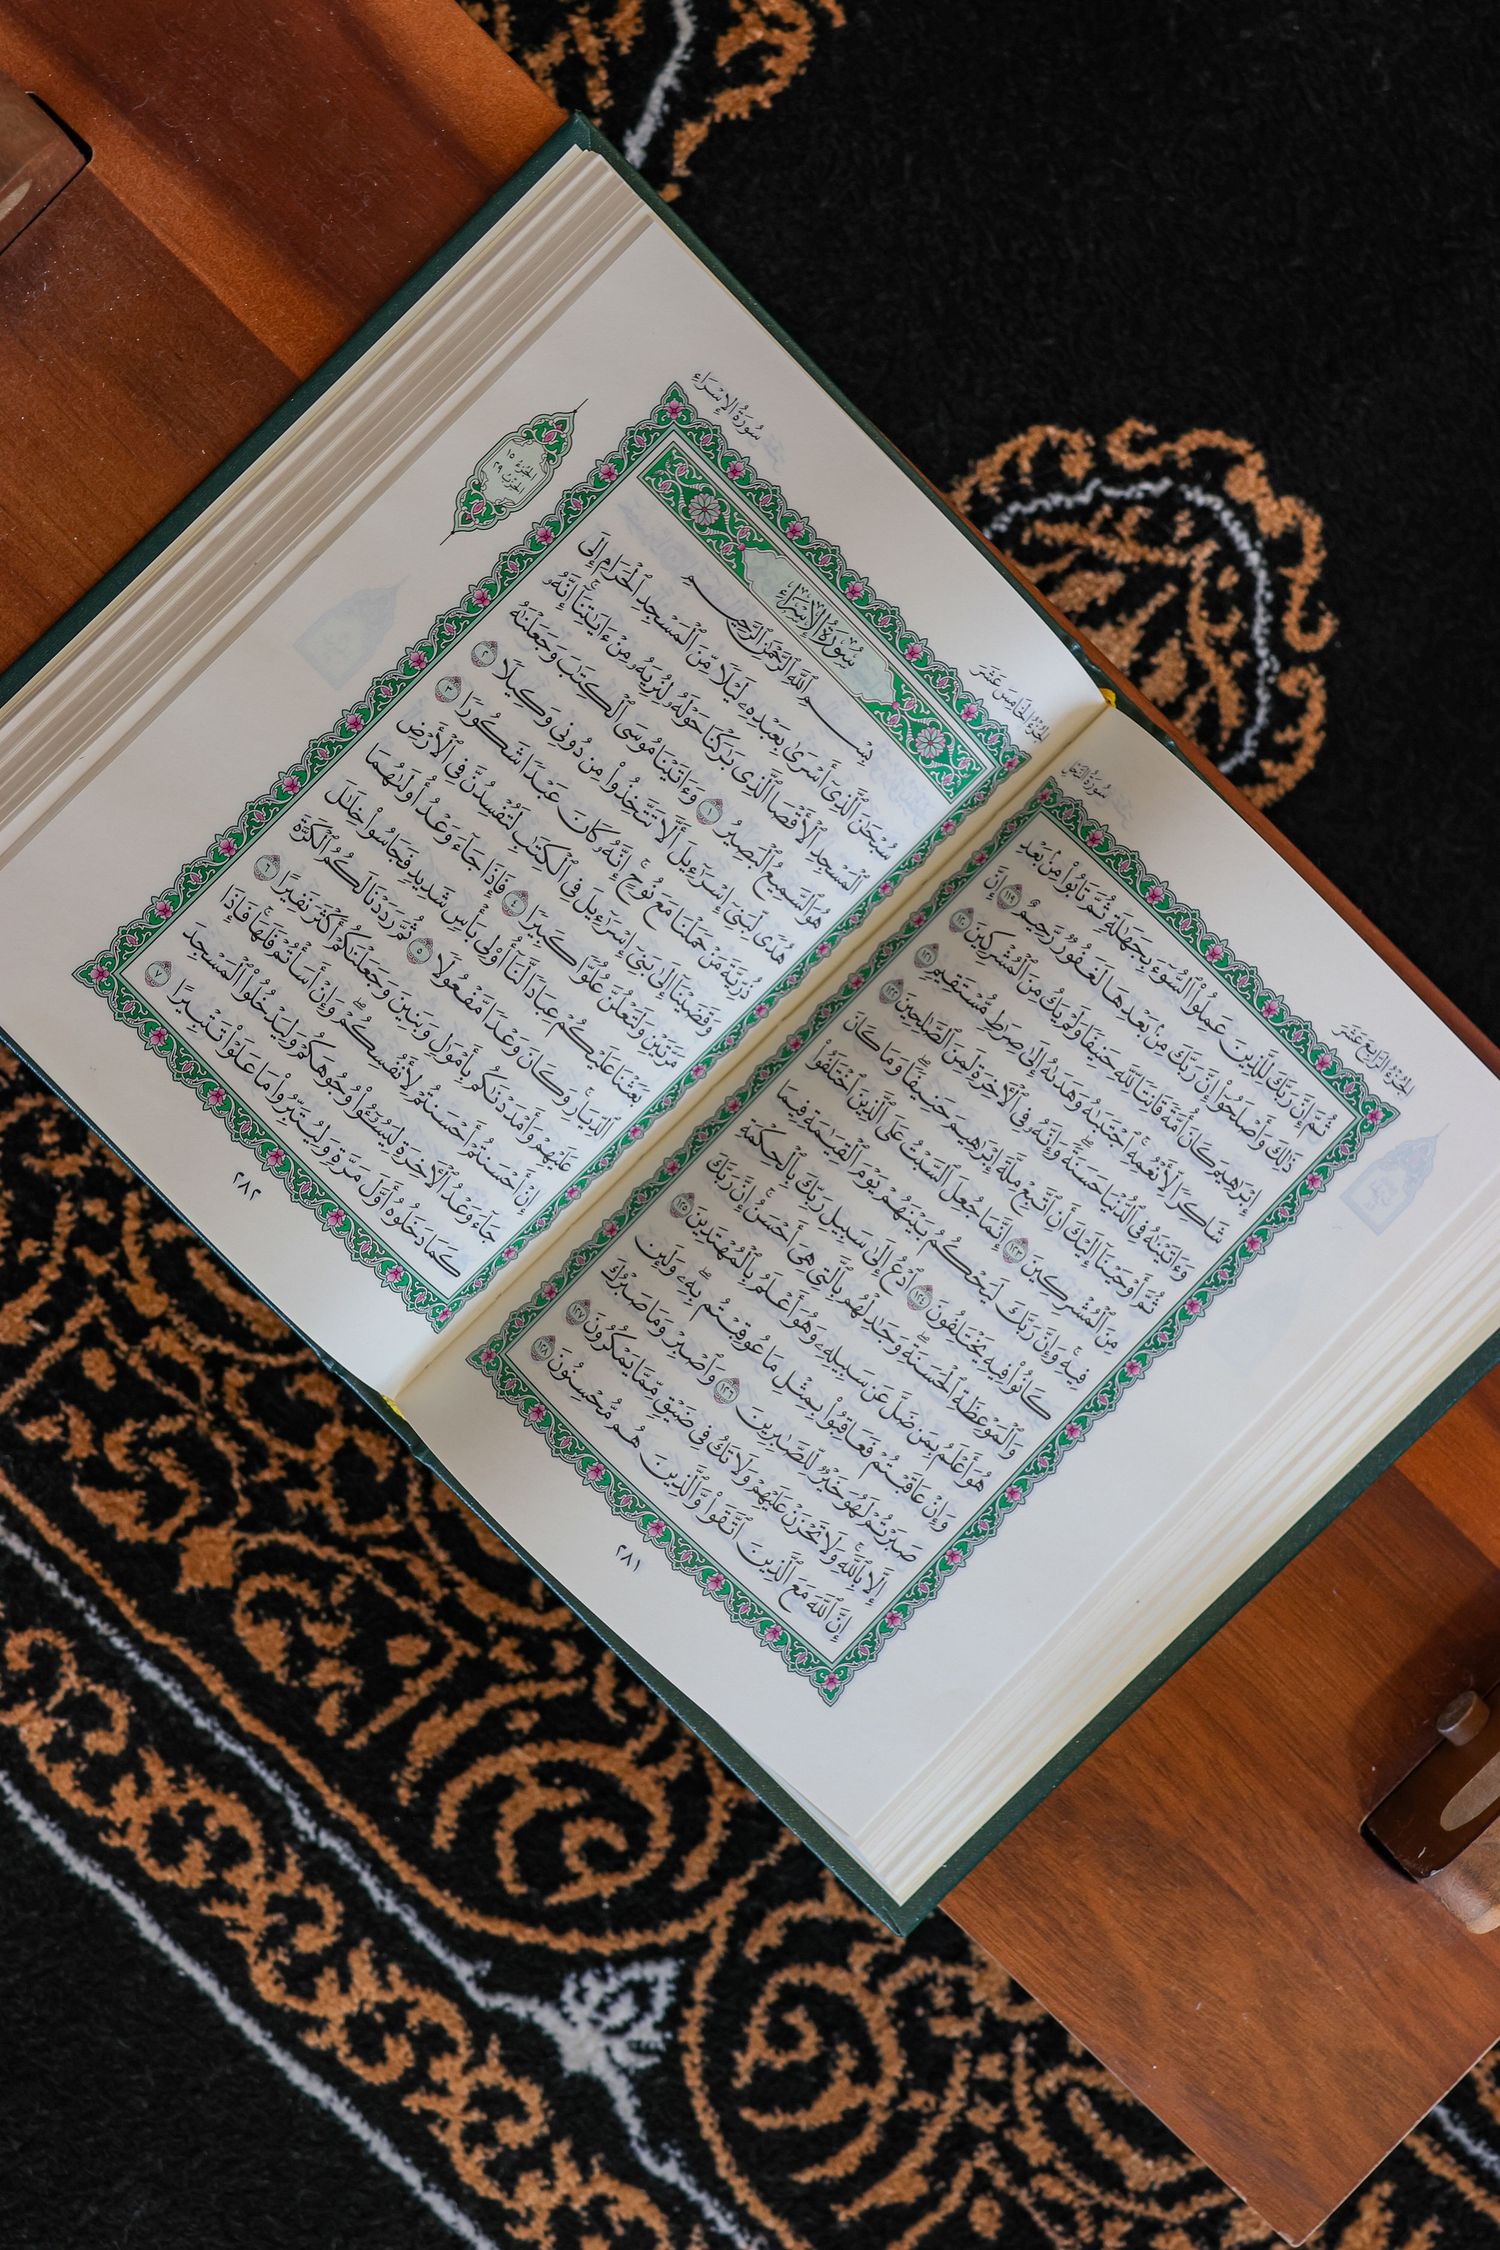 سُورَةُ النَّحْلِ
الجُزْءُ الرَّابِعَ عَشَرَ
ثُمَّ إِنَّ رَبَّكَ لِلَّذِينَ عَمِلُوا۟ ٱلسُّوٓءَ بِجَهَٰلَةٍ ثُمَّ تَابُوا۟ مِنۢ بَعْدِ
ذَٰلِكَ وَأَصْلَحُوٓا۟ إِنَّ رَبَّكَ مِنۢ بَعْدِهَا لَغَفُورٌ رَّحِيمٌ ١١٩ إِنَّ
إِبْرَٰهِيمَ كَانَ أُمَّةً قَانِتًا لِّلَّهِ حَنِيفًا وَلَمْ يَكُ مِنَ ٱلْمُشْرِكِينَ ١٢٠
شَاكِرًا لِّأَنْعُمِهِ ۚ ٱجْتَبَىٰهُ وَهَدَىٰهُ إِلَىٰ صِرَٰطٍ مُّسْتَقِيمٍ ١٢١
وَءَاتَيْنَٰهُ فِى ٱلدُّنْيَا حَسَنَةً ۖ وَإِنَّهُۥ فِى ٱلْءَاخِرَةِ لَمِنَ ٱلصَّٰلِحِينَ ١٢٢
ثُمَّ أَوْحَيْنَآ إِلَيْكَ أَنِ ٱتَّبِعْ مِلَّةَ إِبْرَٰهِيمَ حَنِيفًا ۖ وَمَا كَانَ
مِنَ ٱلْمُشْرِكِينَ ١٢٣ إِنَّمَا جُعِلَ ٱلسَّبْتُ عَلَى ٱلَّذِينَ ٱخْتَلَفُوا۟
فِيهِ ۚ وَإِنَّ رَبَّكَ لَيَحْكُمُ بَيْنَهُمْ يَوْمَ ٱلْقِيَٰمَةِ فِيمَا
كَانُوا۟ فِيهِ يَخْتَلِفُونَ ١٢٤ ٱدْعُ إِلَىٰ سَبِيلِ رَبِّكَ بِٱلْحِكْمَةِ
وَٱلْمَوْعِظَةِ ٱلْحَسَنَةِ ۖ وَجَٰدِلْهُم بِٱلَّتِى هِىَ أَحْسَنُ ۚ إِنَّ رَبَّكَ
هُوَ أَعْلَمُ بِمَن ضَلَّ عَن سَبِيلِهِۦ ۖ وَهُوَ أَعْلَمُ بِٱلْمُهْتَدِينَ ١٢٥
وَإِنْ عَاقَبْتُمْ فَعَاقِبُوا۟ بِمِثْلِ مَا عُوقِبْتُم بِهِۦ ۖ وَلَئِن
صَبَرْتُمْ لَهُوَ خَيْرٌ لِّلصَّٰبِرِينَ ١٢٦ وَٱصْبِرْ وَمَا صَبْرُكَ
إِلَّا بِٱللَّهِ ۚ وَلَا تَحْزَنْ عَلَيْهِمْ وَلَا تَكُ فِى ضَيْقٍ مِّمَّا يَمْكُرُونَ ١٢٧
إِنَّ ٱللَّهَ مَعَ ٱلَّذِينَ ٱتَّقَوا۟ وَّٱلَّذِينَ هُم مُّحْسِنُونَ ١٢٨
٢٨١
سُورَةُ الإِسْرَاءِ
الجُزْءُ الخَامِسَ عَشَرَ
الجُزْءُ ١٥
الحِزْبُ ٢٩
سُورَةُ الإِسْرَاءِ
بِسْمِ ٱللَّهِ ٱلرَّحْمَٰنِ ٱلرَّحِيمِ
سُبْحَٰنَ ٱلَّذِىٓ أَسْرَىٰ بِعَبْدِهِۦ لَيْلًا مِّنَ ٱلْمَسْجِدِ ٱلْحَرَامِ إِلَى
ٱلْمَسْجِدِ ٱلْأَقْصَا ٱلَّذِى بَٰرَكْنَا حَوْلَهُۥ لِنُرِيَهُۥ مِنْ ءَايَٰتِنَآ ۚ إِنَّهُۥ
هُوَ ٱلسَّمِيعُ ٱلْبَصِيرُ ١ وَءَاتَيْنَا مُوسَى ٱلْكِتَٰبَ وَجَعَلْنَٰهُ
هُدًى لِّبَنِىٓ إِسْرَٰٓءِيلَ أَلَّا تَتَّخِذُوا۟ مِن دُونِى وَكِيلًا ٢
ذُرِّيَّةَ مَنْ حَمَلْنَا مَعَ نُوحٍ ۚ إِنَّهُۥ كَانَ عَبْدًا شَكُورًا ٣
وَقَضَيْنَآ إِلَىٰ بَنِىٓ إِسْرَٰٓءِيلَ فِى ٱلْكِتَٰبِ لَتُفْسِدُنَّ فِى ٱلْأَرْضِ
مَرَّتَيْنِ وَلَتَعْلُنَّ عُلُوًّا كَبِيرًا ٤ فَإِذَا جَآءَ وَعْدُ أُولَىٰهُمَا
بَعَثْنَا عَلَيْكُمْ عِبَادًا لَّنَآ أُو۟لِى بَأْسٍ شَدِيدٍ فَجَاسُوا۟ خِلَٰلَ
ٱلدِّيَارِ ۚ وَكَانَ وَعْدًا مَّفْعُولًا ٥ ثُمَّ رَدَدْنَا لَكُمُ ٱلْكَرَّةَ
عَلَيْهِمْ وَأَمْدَدْنَٰكُم بِأَمْوَٰلٍ وَبَنِينَ وَجَعَلْنَٰكُمْ أَكْثَرَ نَفِيرًا ٦
إِنْ أَحْسَنتُمْ أَحْسَنتُمْ لِأَنفُسِكُمْ ۖ وَإِنْ أَسَأْتُمْ فَلَهَا ۚ فَإِذَا
جَآءَ وَعْدُ ٱلْءَاخِرَةِ لِيَسُۥٓـُٔوا۟ وُجُوهَكُمْ وَلِيَدْخُلُوا۟ ٱلْمَسْجِدَ
كَمَا دَخَلُوهُ أَوَّلَ مَرَّةٍ وَلِيُتَبِّرُوا۟ مَا عَلَوْا۟ تَتْبِيرًا ٧
٢٨٢